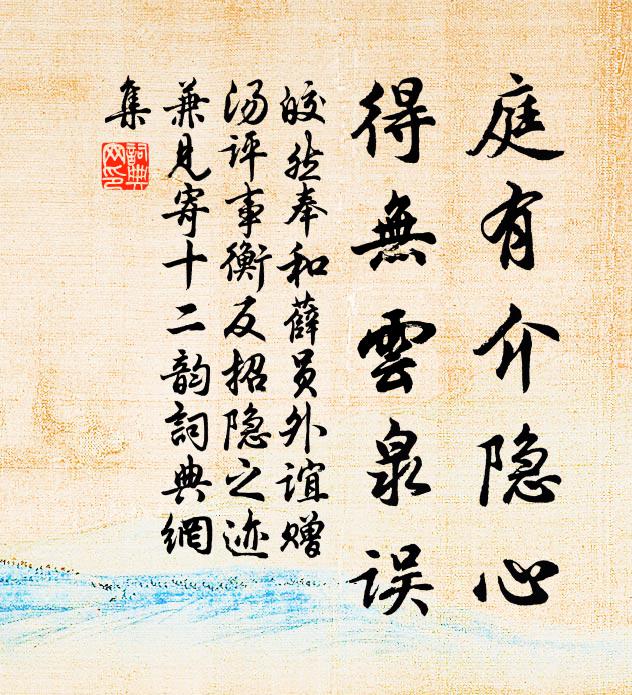 庭有介隐心
得無雲泉误
皎然奉和薛员外谊赠
汤评事衡反招隐之迹
兼見寄十二韵詞典網
集
詞典
网印